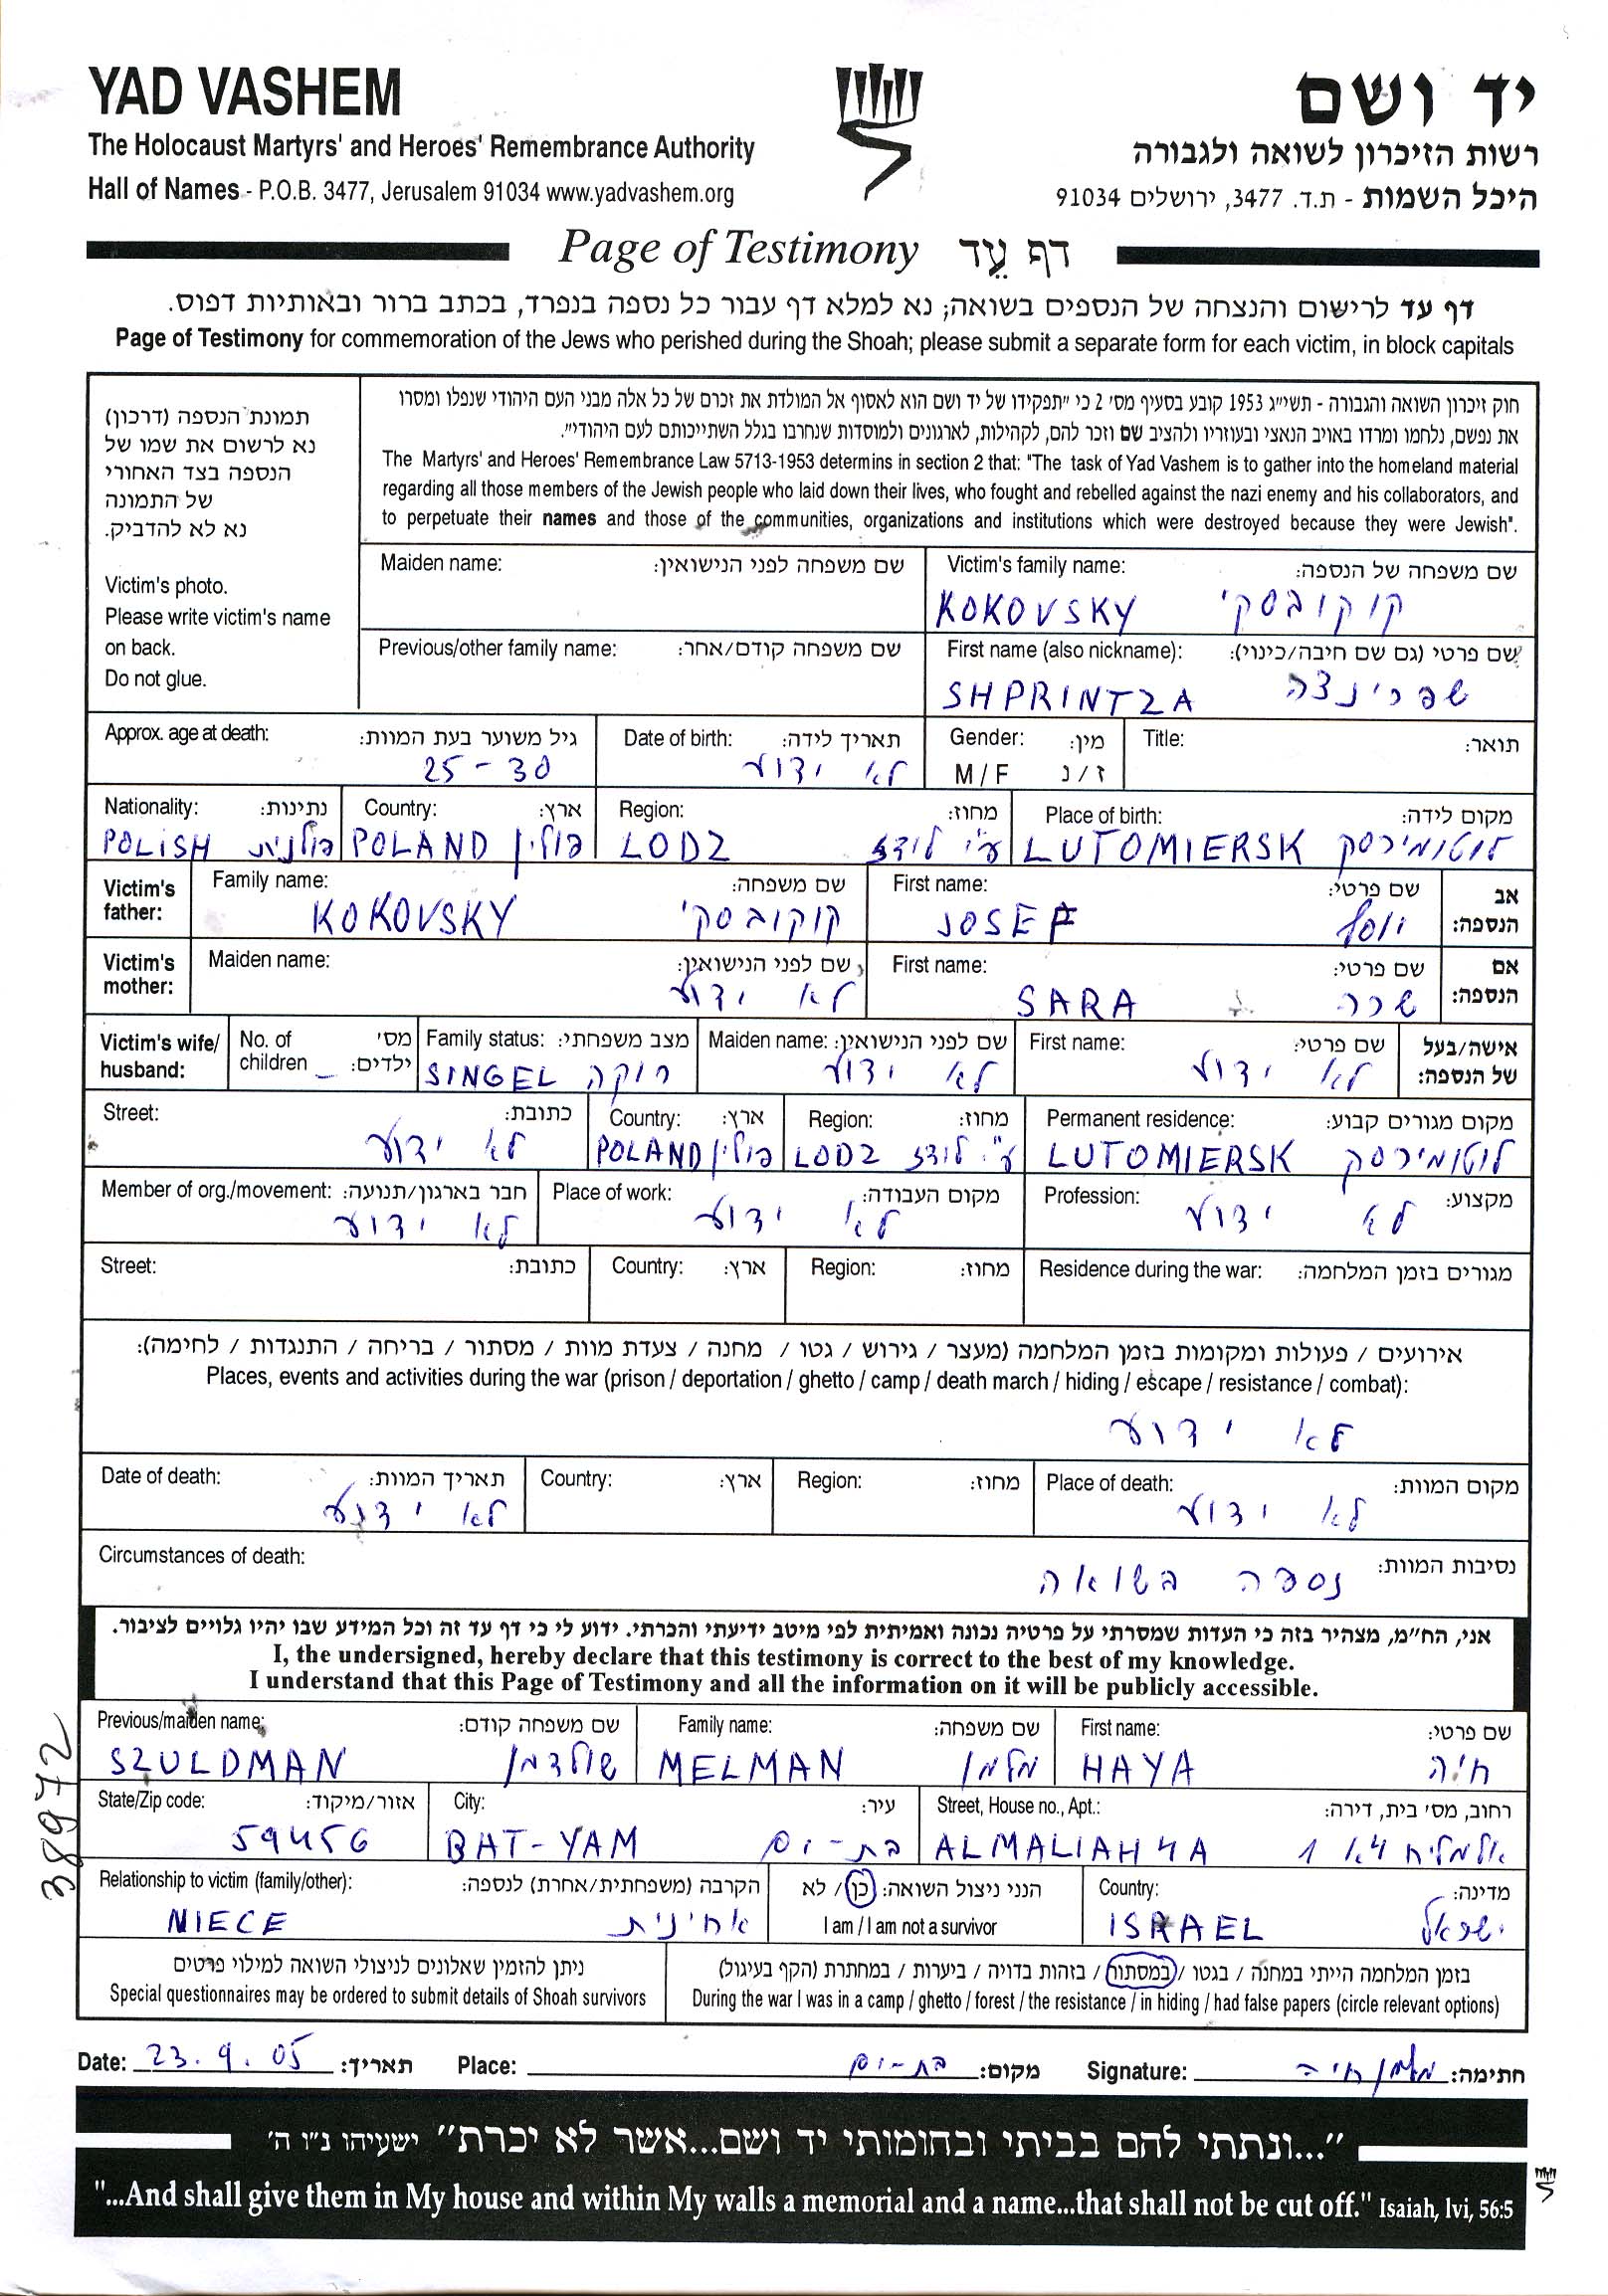 YAD VASHEM
יד ושם
The Holocaust Martyrs' and Heroes' Remembrance Authority
רשות הזיכרון לשואה ולגבורה
Hall of Names - P.O.B. 3477, Jerusalem 91034 www.yadvashem.org
היכל השמות - ת.ד. 3477, ירושלים 91034
Page of Testimony דף עֵד
דף עד לרישום והנצחה של הנספים בשואה; נא למלא דף עבור כל נספה בנפרד, בכתב ברור ובאותיות דפוס.
Page of Testimony for commemoration of the Jews who perished during the Shoah; please submit a separate form for each victim, in block capitals
תמונת הנספה (דרכון)
נא לרשום את שמו של
הנספה בצד האחורי
של התמונה
נא לא להדביק.
Victim's photo.
Please write victim's name
on back.
Do not glue.
חוק זיכרון השואה והגבורה - תשי״ג 1953 קובע בסעיף מס׳ 2 כי ״תפקידו של יד ושם הוא לאסוף אל המולדת את זכרם של כל אלה מבני העם היהודי שנפלו ומסרו
את נפשם, נלחמו ומרדו באויב הנאצי ובעוזריו ולהציב שם וזכר להם, לקהילות, לארגונים ולמוסדות שנחרבו בגלל השתייכותם לעם היהודי״.
The Martyrs' and Heroes' Remembrance Law 5713-1953 determins in section 2 that: "The task of Yad Vashem is to gather into the homeland material
regarding all those members of the Jewish people who laid down their lives, who fought and rebelled against the nazi enemy and his collaborators, and
to perpetuate their names and those of the communities, organizations and institutions which were destroyed because they were Jewish".
Maiden name: שם משפחה לפני הנישואין:
Victim's family name: שם משפחה של הנספה:
KOKOVSKY קוקובסקי
Previous/other family name: שם משפחה קודם/אחר:
First name (also nickname): שם פרטי (גם שם חיבה/כינוי):
SHPRINTZA שפרינצה
Approx. age at death: גיל משוער בעת המוות:
25-30
Date of birth: תאריך לידה:
לא ידוע
Gender: מין:
M / F ז / נ
Title: תואר:
Nationality: נתינות:
POLISH פולנית
Country: ארץ:
POLAND פולין
Region: מחוז:
LODZ ע״י לודז
Place of birth: מקום לידה:
LUTOMIERSK לוטומירסק
Victim's father:
Family name: שם משפחה:
KOKOVSKY קוקובסקי
First name: שם פרטי:
JOSEF יוסף
אב הנספה:
Victim's mother:
Maiden name: שם לפני הנישואין:
לא ידוע
First name: שם פרטי:
SARA שרה
אם הנספה:
Victim's wife/ husband:
No. of children מס׳ ילדים:
–
Family status: מצב משפחתי:
SINGEL רווקה
Maiden name: שם לפני הנישואין:
לא ידוע
First name: שם פרטי:
לא ידוע
אישה/בעל של הנספה:
Street: כתובת:
לא ידוע
Country: ארץ:
POLAND פולין
Region: מחוז:
LODZ ע״י לודז
Permanent residence: מקום מגורים קבוע:
LUTOMIERSK לוטומירסק
Member of org./movement: חבר בארגון/תנועה:
לא ידוע
Place of work: מקום העבודה:
לא ידוע
Profession: מקצוע:
לא ידוע
Street: כתובת:
Country: ארץ:
Region: מחוז:
Residence during the war: מגורים בזמן המלחמה:
אירועים / פעולות ומקומות בזמן המלחמה (מעצר / גירוש / גטו / מחנה / צעדת מוות / מסתור / בריחה / התנגדות / לחימה):
Places, events and activities during the war (prison / deportation / ghetto / camp / death march / hiding / escape / resistance / combat):
לא ידוע
Date of death: תאריך המוות:
לא ידוע
Country: ארץ:
Region: מחוז:
Place of death: מקום המוות:
לא ידוע
Circumstances of death: נסיבות המוות:
נספה בשואה
אני, הח״מ, מצהיר בזה כי העדות שמסרתי על פרטיה נכונה ואמיתית לפי מיטב ידיעתי והכרתי. ידוע לי כי דף עד זה וכל המידע שבו יהיו גלויים לציבור.
I, the undersigned, hereby declare that this testimony is correct to the best of my knowledge.
I understand that this Page of Testimony and all the information on it will be publicly accessible.
Previous/maiden name: שם משפחה קודם:
SZULDMAN שולדמן
Family name: שם משפחה:
MELMAN מלמן
First name: שם פרטי:
HAYA חיה
State/Zip code: אזור/מיקוד:
59456
City: עיר:
BAT-YAM בת-ים
Street, House no., Apt.: רחוב, מס׳ בית, דירה:
ALMALIAH 4A אלמליח 4א 1
Relationship to victim (family/other): הקרבה (משפחתית/אחרת) לנספה:
NIECE אחינית
הנני ניצול השואה: כן / לא
I am / I am not a survivor
Country: מדינה:
ISRAEL ישראל
ניתן להזמין שאלונים לניצולי השואה למילוי פרטים
Special questionnaires may be ordered to submit details of Shoah survivors
בזמן המלחמה הייתי במחנה / בגטו / במסתור / בזהות בדויה / ביערות / במחתרת (הקף בעיגול)
During the war I was in a camp / ghetto / forest / the resistance / in hiding / had false papers (circle relevant options)
38972
Date: 23.9.05 תאריך: Place: בת-ים מקום: Signature: מלמן חיה חתימה:
״...ונתתי להם בביתי ובחומותי יד ושם...אשר לא יכרת״ ישעיהו נ״ו ה׳
"...And shall give them in My house and within My walls a memorial and a name...that shall not be cut off." Isaiah, lvi, 56:5